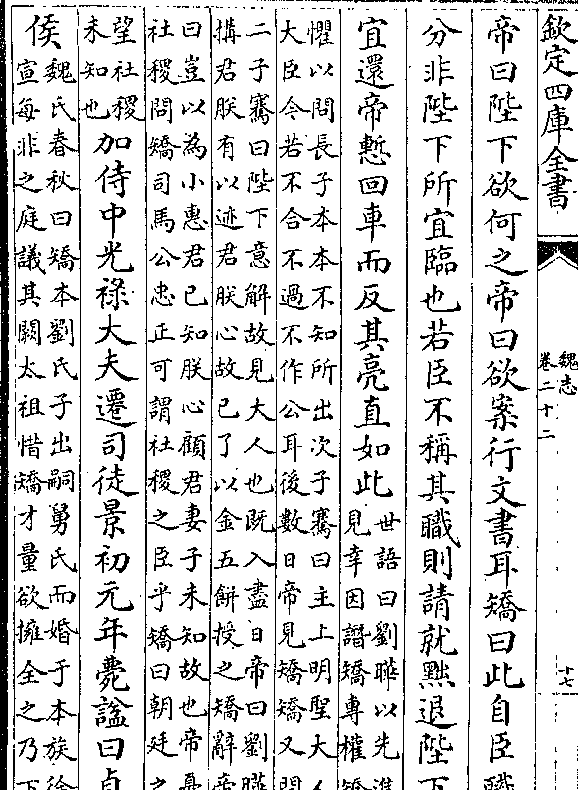 欽定四庫全書
魏志
卷二十二
十七
帝曰陛下欲何之帝曰欲案行文書耳矯曰此自臣職
分非陛下所宜臨也若臣不稱其職則請就黜退陛下
宜還帝慙回車而反其亮直如此
世語曰劉曄以先進
見幸因譖矯專權矯
懼以問長子本本不知所出次子騫曰主上明聖大人
大臣今若不合不過不作公耳後數日帝見矯矯又問
二子騫曰陛下意解故見大人也既入盡日帝曰劉曄
搆君朕有以迹君朕心故已了以金五餅授之矯辭帝
曰豈以為小惠君已知朕心顧君妻子未知故也帝憂
社稷問矯司馬公忠正可謂社稷之臣乎矯曰朝廷之
望社稷
未知也
加侍中光祿大夫遷司徒景初元年薨諡曰貞
侯
魏氏春秋曰矯本劉氏子出嗣舅氏而婚于本族徐
宣每非之庭議其闕太祖惜矯才量欲擁全之乃下